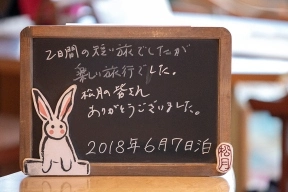 2日間の短い旅でしたが
楽しい旅行でした。
松月の皆さん
ありがとうございました。
2018年6月7日泊
松月